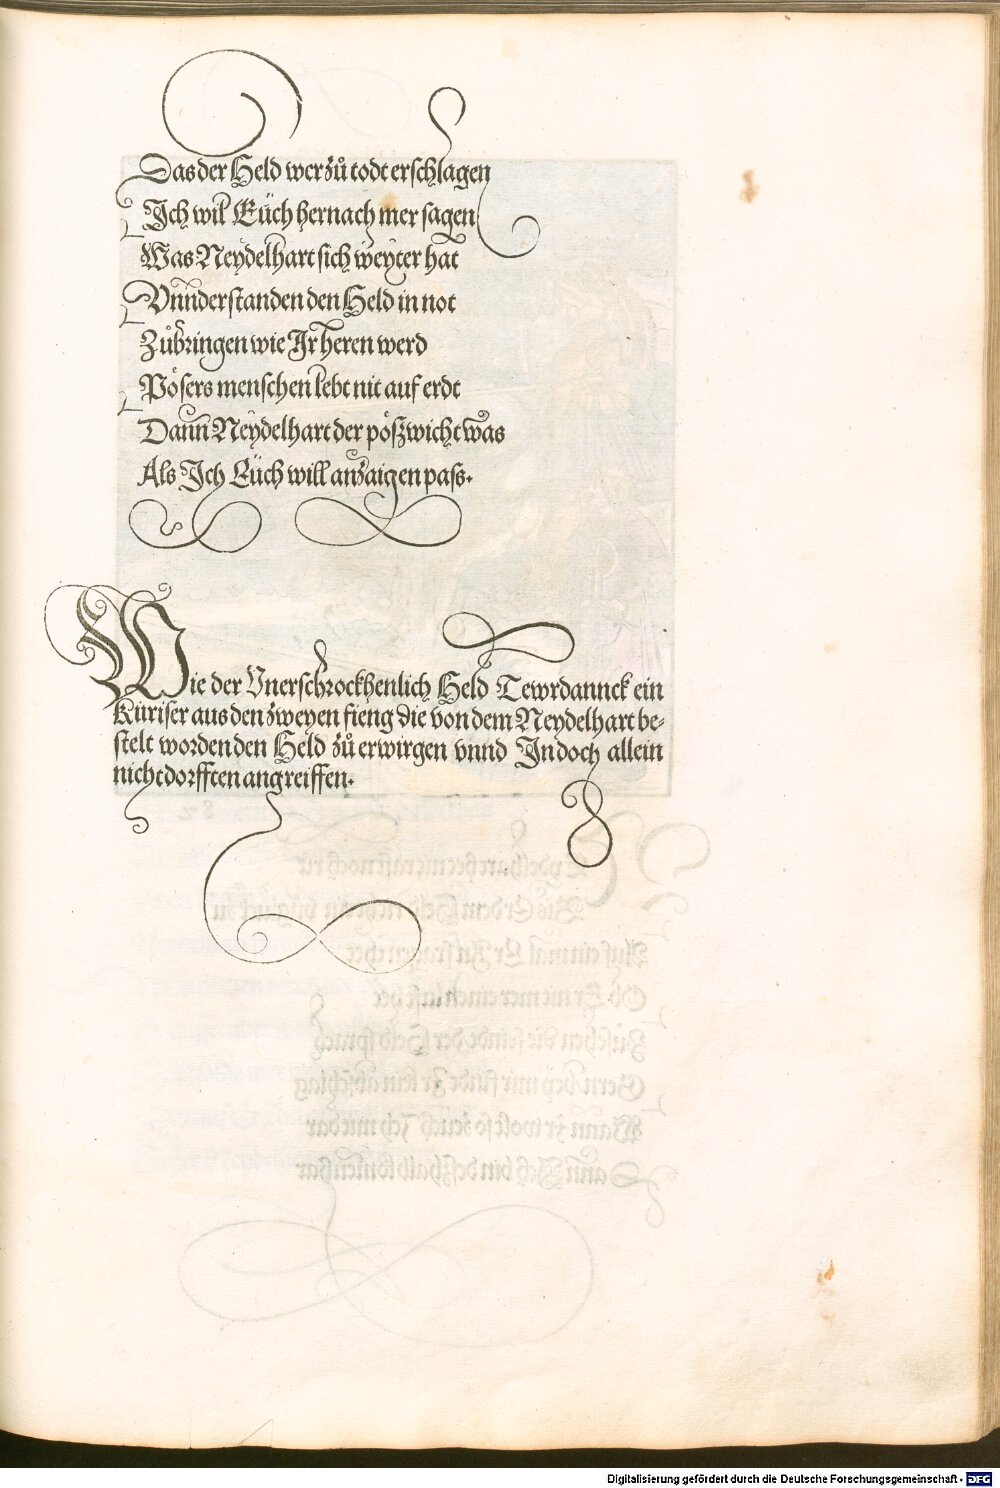 Das der Held wer zů todt erschlagen
Ich wil Eüch hernach mer sagen
Was Neydelhart sich weyter hat
Vnnderstanden den Held in not
Zůbringen wie Ir heren werd
Pösers menschen lebt nit auf erdt
Dann Neydelhart der pößwicht was
Als Ich Eüch will anzaigen pass.
Wie der Vnerschrockhenlich Held Tewrdannck ein
Küriser aus den zweyen fieng die von dem Neydelhart be-
stelt worden den Held zů erwirgen vnnd In doch allein
nicht dorfften angreiffen.
Digitalisierung gefördert durch die Deutsche Forschungsgemeinschaft - DFG